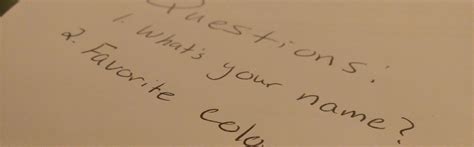 Questions:
1. What's your name?
2. Favorite colo